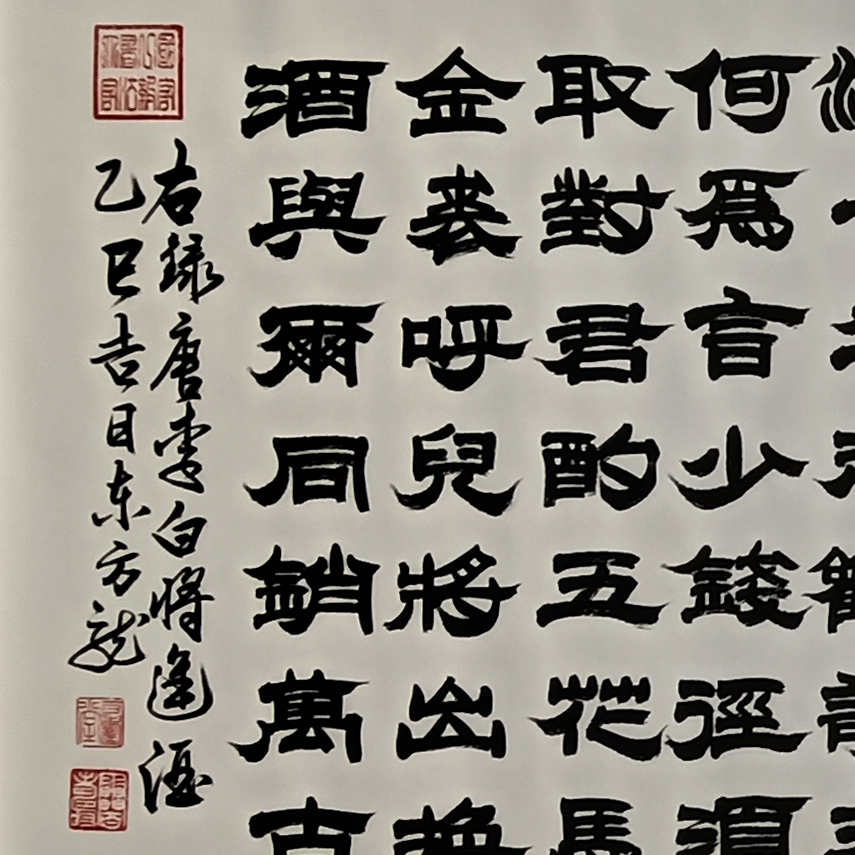 何爲言少錢徑須
取對君酌五花馬
金裘呼兒將出換
酒與爾同銷萬古
右錄唐李白將進酒
乙巳吉日东方龍